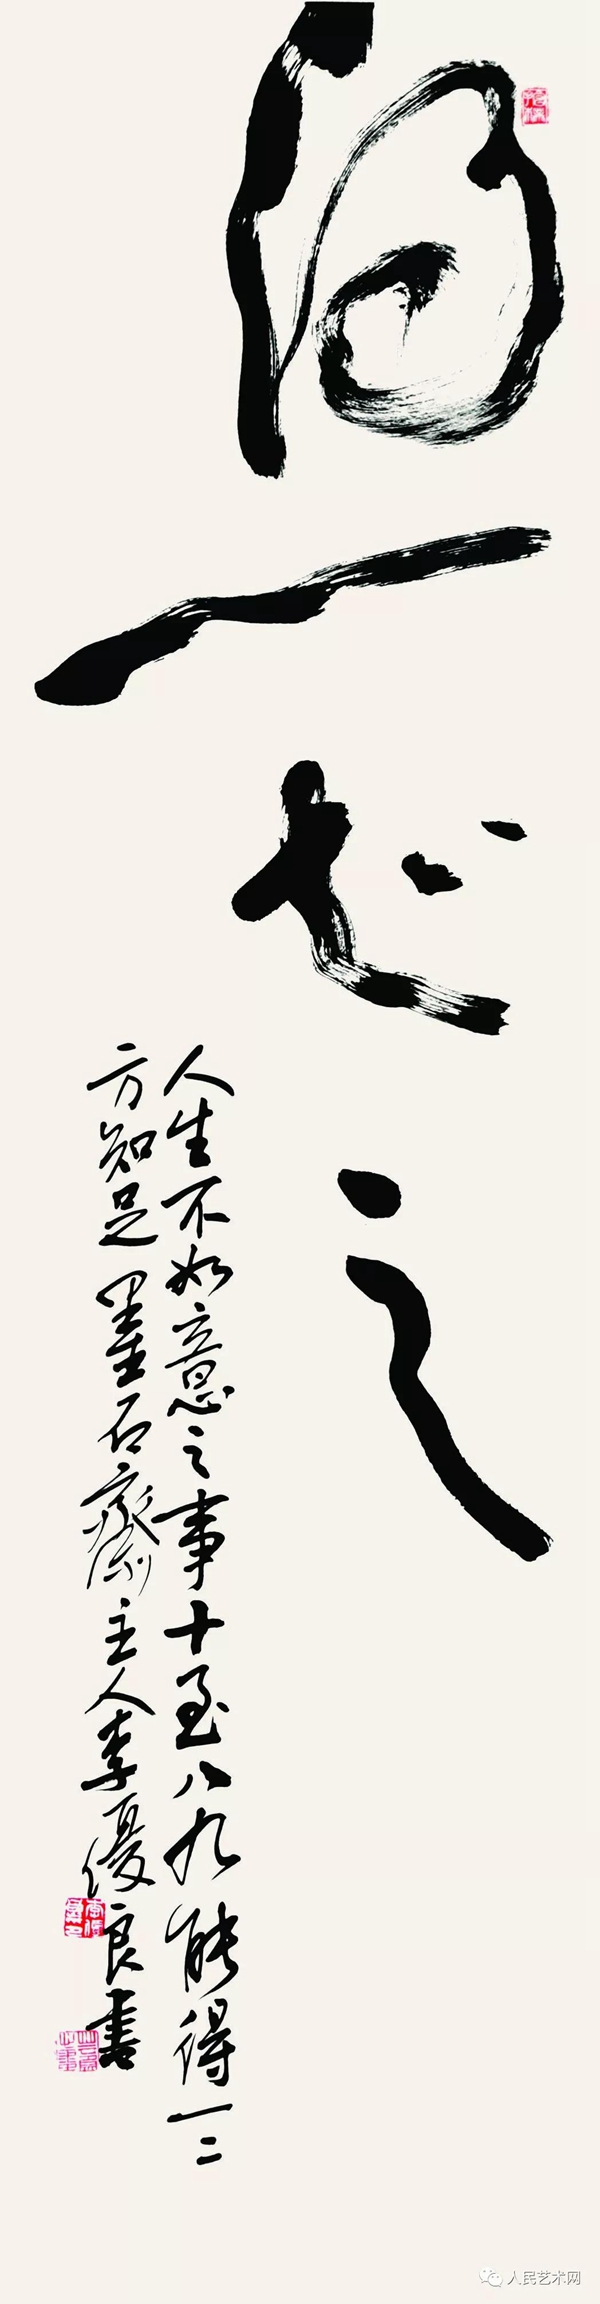 一之
人生不如意之事十至八九能得一二
方知足墨石齋主人李優良書
人民艺术网